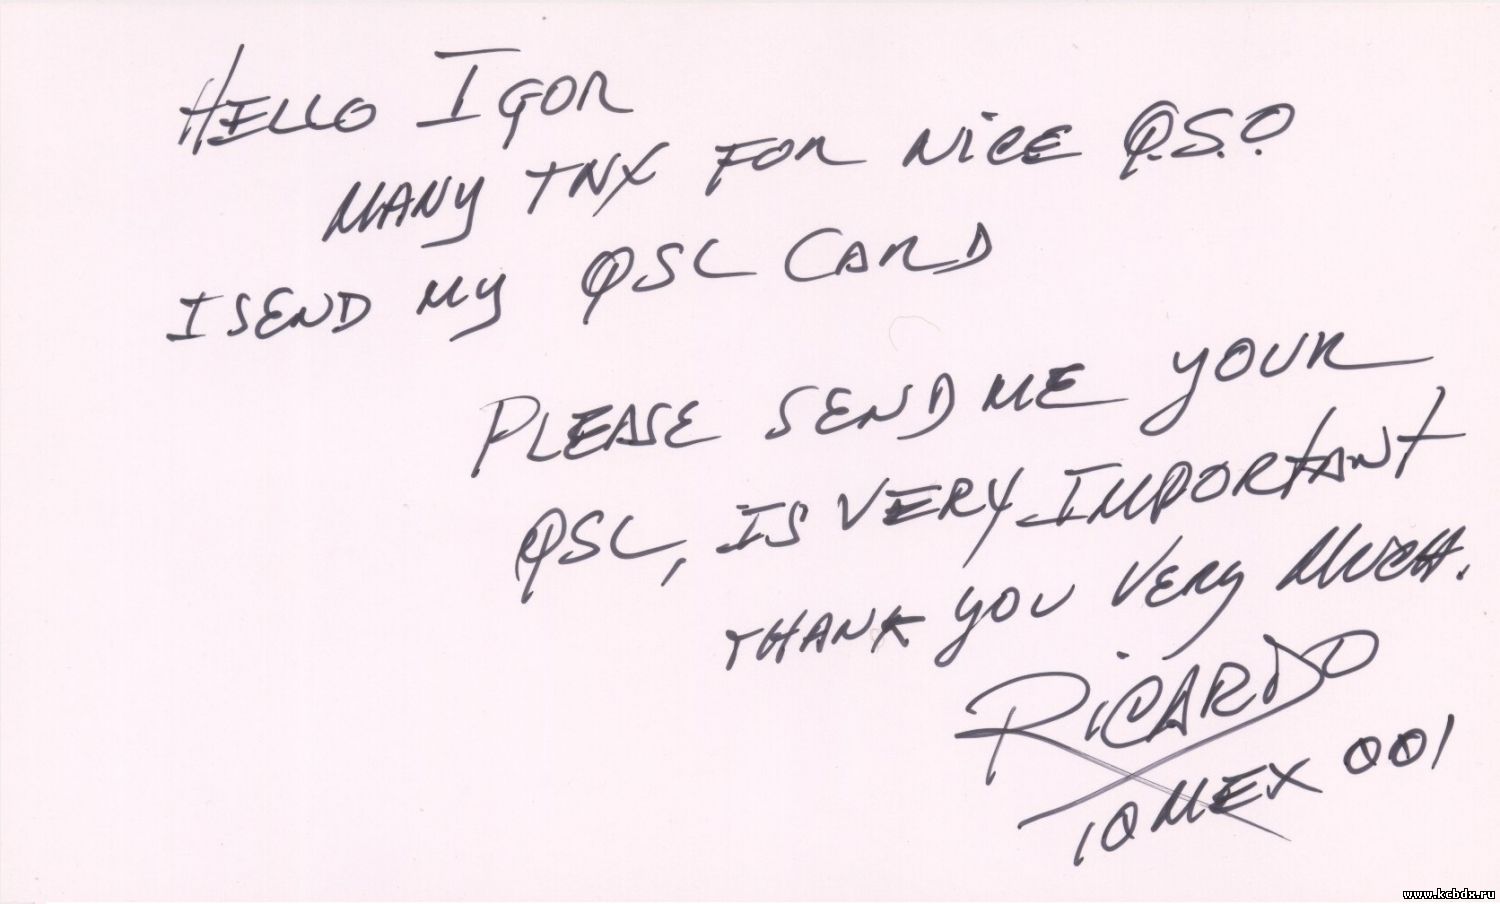 HELLO IGOR
MANY TNX FOR NICE Q.S.O
I SEND MY QSL CARD
PLEASE SEND ME YOUR
QSL, IS VERY IMPORTANT
THANK YOU VERY MUCH.
RICARDO
10MEX 001
www.kcbdx.ru